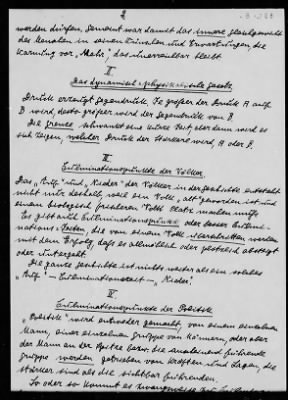 2
werden dürfen. Gemeint war damit das innere Gleichgewicht
des Menschen in seinen Trieben und Erwartungen, die
Warnung vor „Mehr", das unerreichbar bleibt.
II
Das dynamisch-physikalische Gesetz.
Druck erzeugt Gegendruck. Je größer der Druck A auf
B wird, desto größer wird der Gegendruck von B.
Die Grenze schwankt eine kurze Zeit, aber dann wird es
sich zeigen, welcher Druck der stärkere ward, A oder B.
III
Culminationspunkte der Völker.
Das „Auf" und „Nieder" der Völker in der Geschichte entsteht
nicht nur deshalb, weil ein Volk „alt" geworden ist und
einem biologisch frischeren Volk Platz machen muß.
Es gibt auch Culminationspunkte oder besser Culmina-
tions-Zeiten, die von einem Volk überschritten werden
mit dem Erfolg, daß es allmählich oder plötzlich absteigt
oder untergeht.
Die ganze Geschichte ist nichts weiter als ein solches
„Auf" – Culminationszeit – „Nieder".
IV
Culminationspunkte der Politik
„Politik" wird entweder gemacht, von einem einzelnen
Mann, einer einzelnen Gruppe von Männern, oder aber
der Mann an der Spitze bzw. die anscheinend führende
Gruppe werden getrieben von Kräften und Lagen, die
stärker sind als die sichtbar führenden.
So oder so kommt es zwangsweise